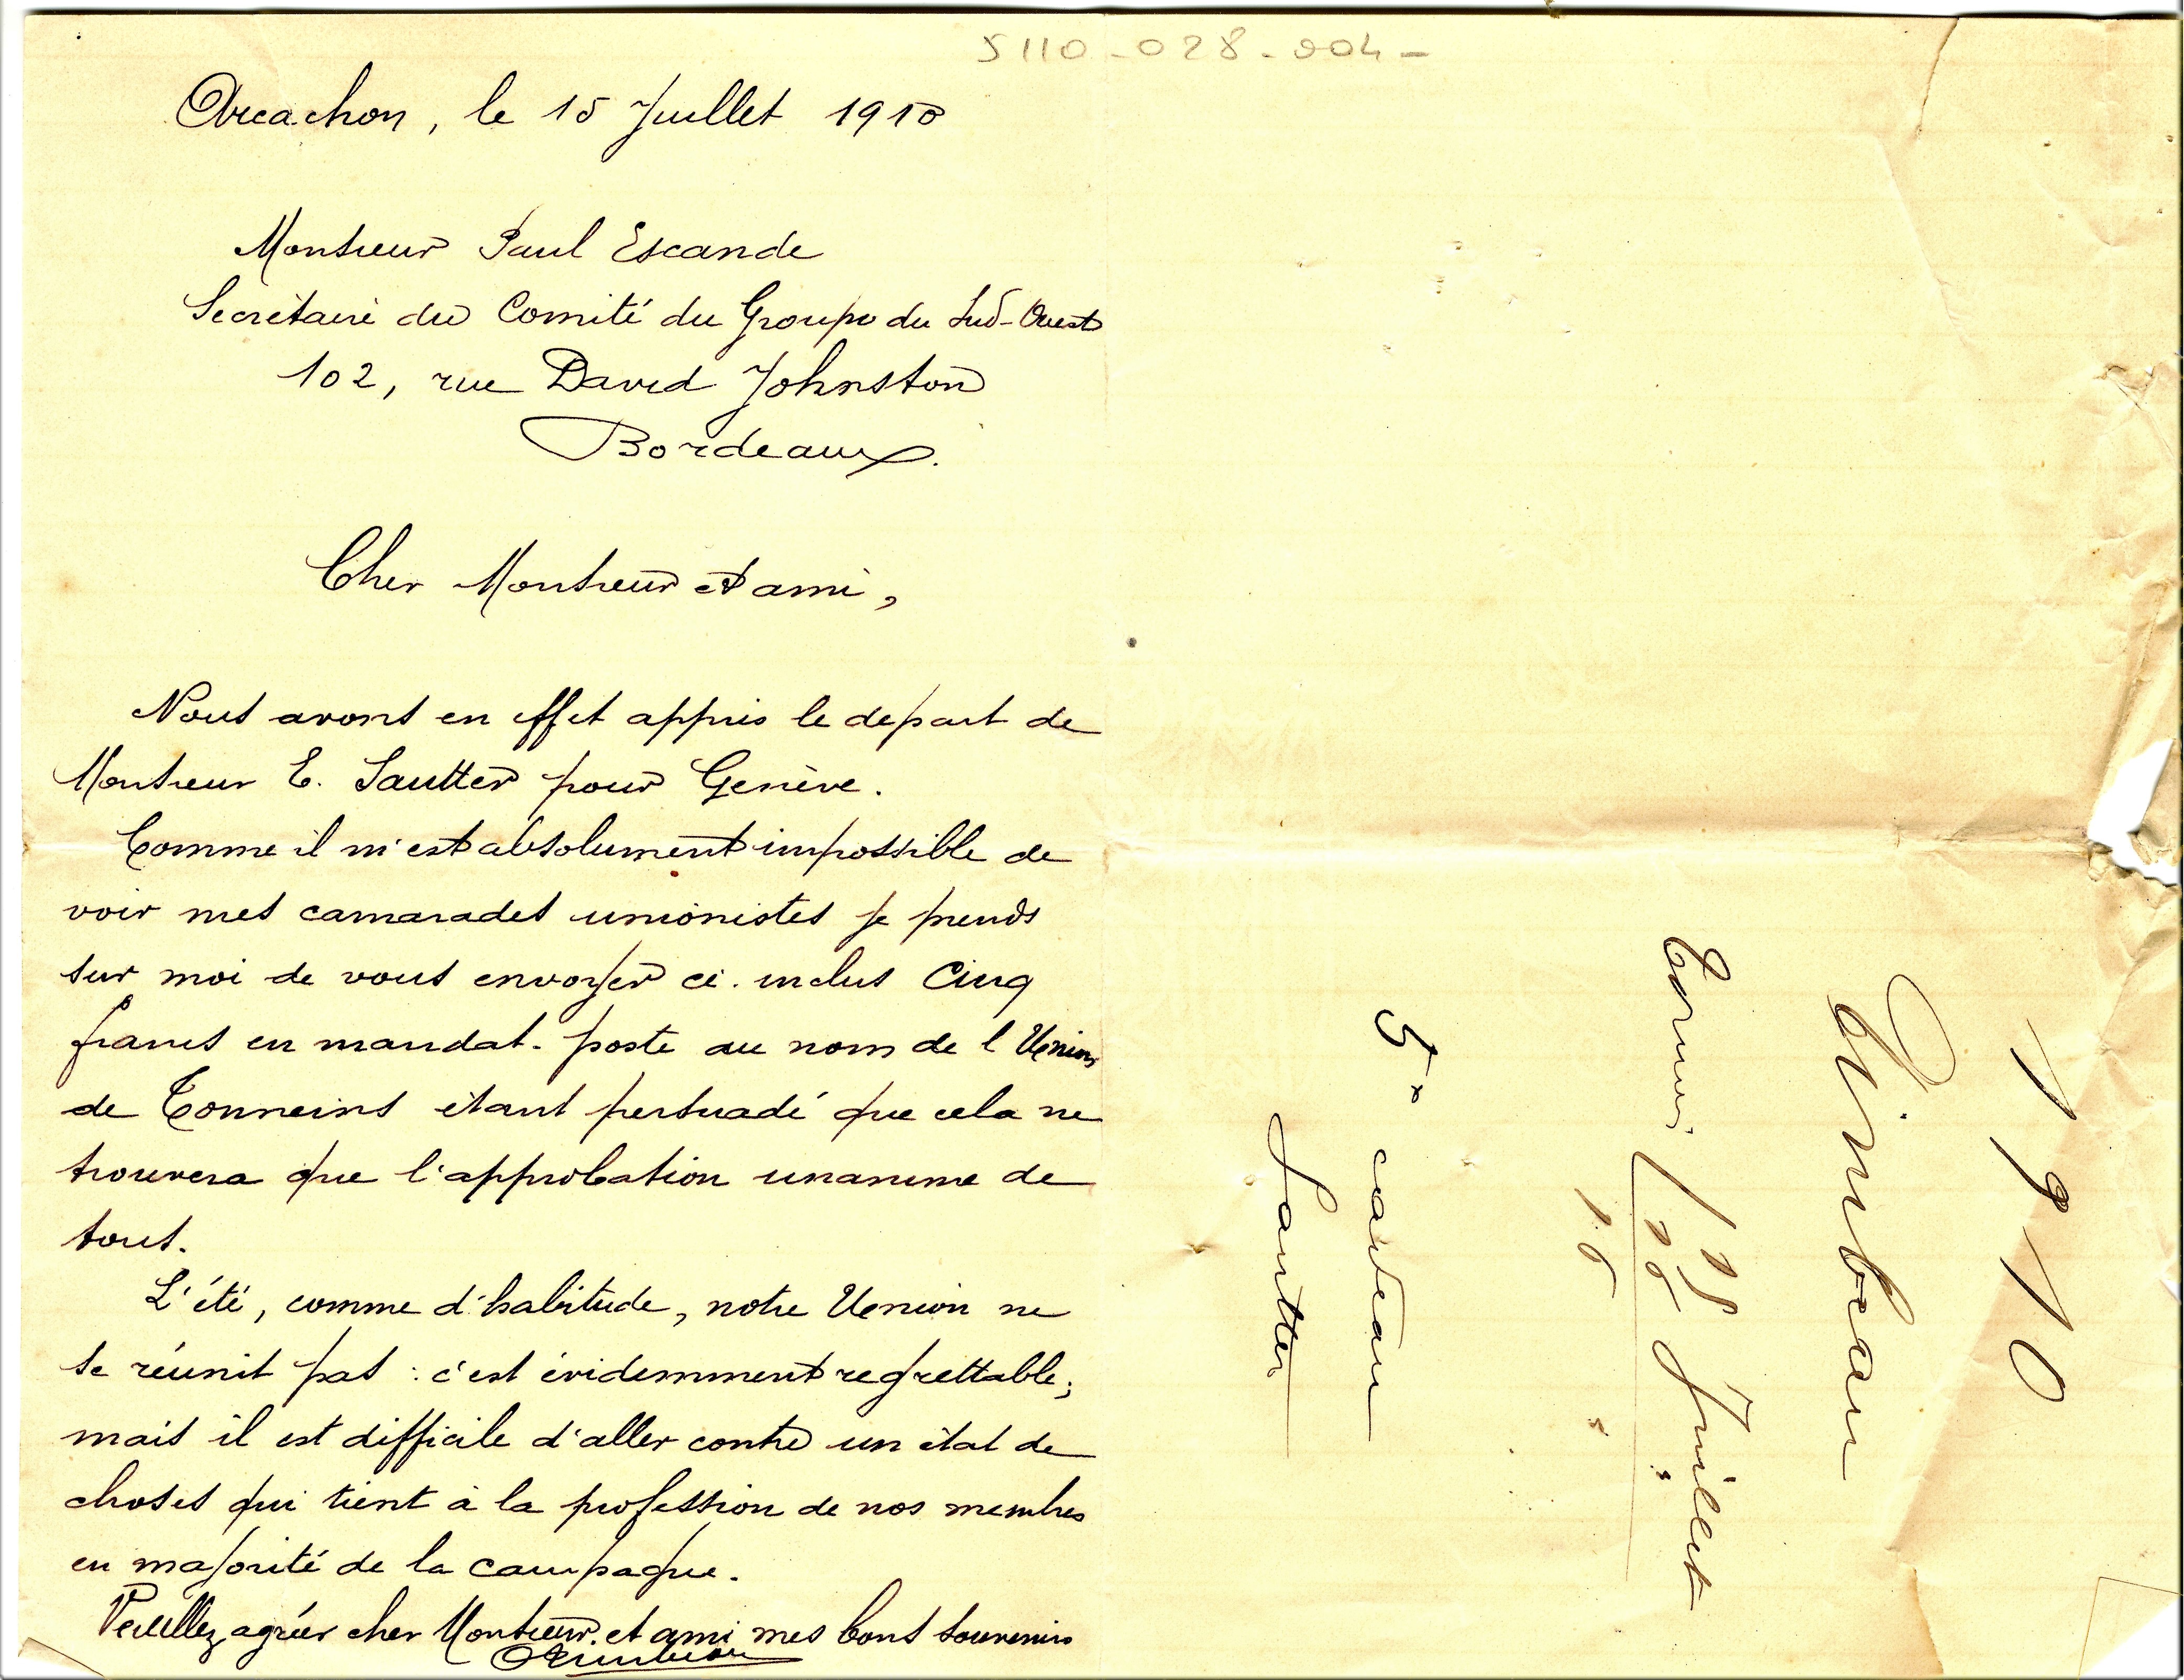 5110-028-004-
Arcachon, le 15 Juillet 1910
Monsieur Paul Escande
Secrétaire du Comité du Groupe du Sud-Ouest
102, rue David Johnston
Bordeaux.
Cher Monsieur et ami,
Nous avons en effet appris le depart de
Monsieur E. Sautter pour Genève.
Comme il m'est absolument impossible de
voir mes camarades unionistes je prends
sur moi de vous envoyer ci-inclus Cinq
francs en mandat-poste au nom de l'Union
de Tonneins étant persuadé que cela ne
trouvera que l'approbation unanime de
tous.
L'été, comme d'habitude, notre Union ne
se réunit pas : c'est évidemment regrettable;
mais il est difficile d'aller contre un état de
choses qui tient à la profession de nos membres
en majorité de la campagne.
Veuillez agréer cher Monsieur et ami mes bons souvenirs
1910
Juillet
5 cadeau
Sautter